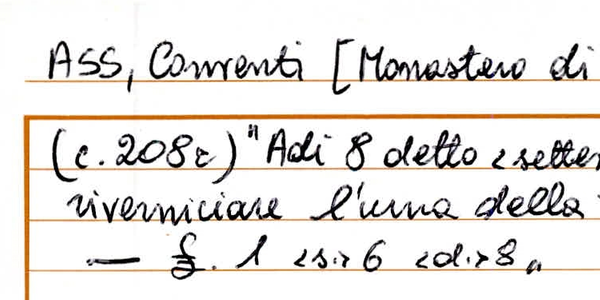 ASS, Conventi [Monastero di
(c. 208r) "Adi 8 detto <settem
riverniciare l'urna della
— £. 1 <s.> 6 <d.> 8"